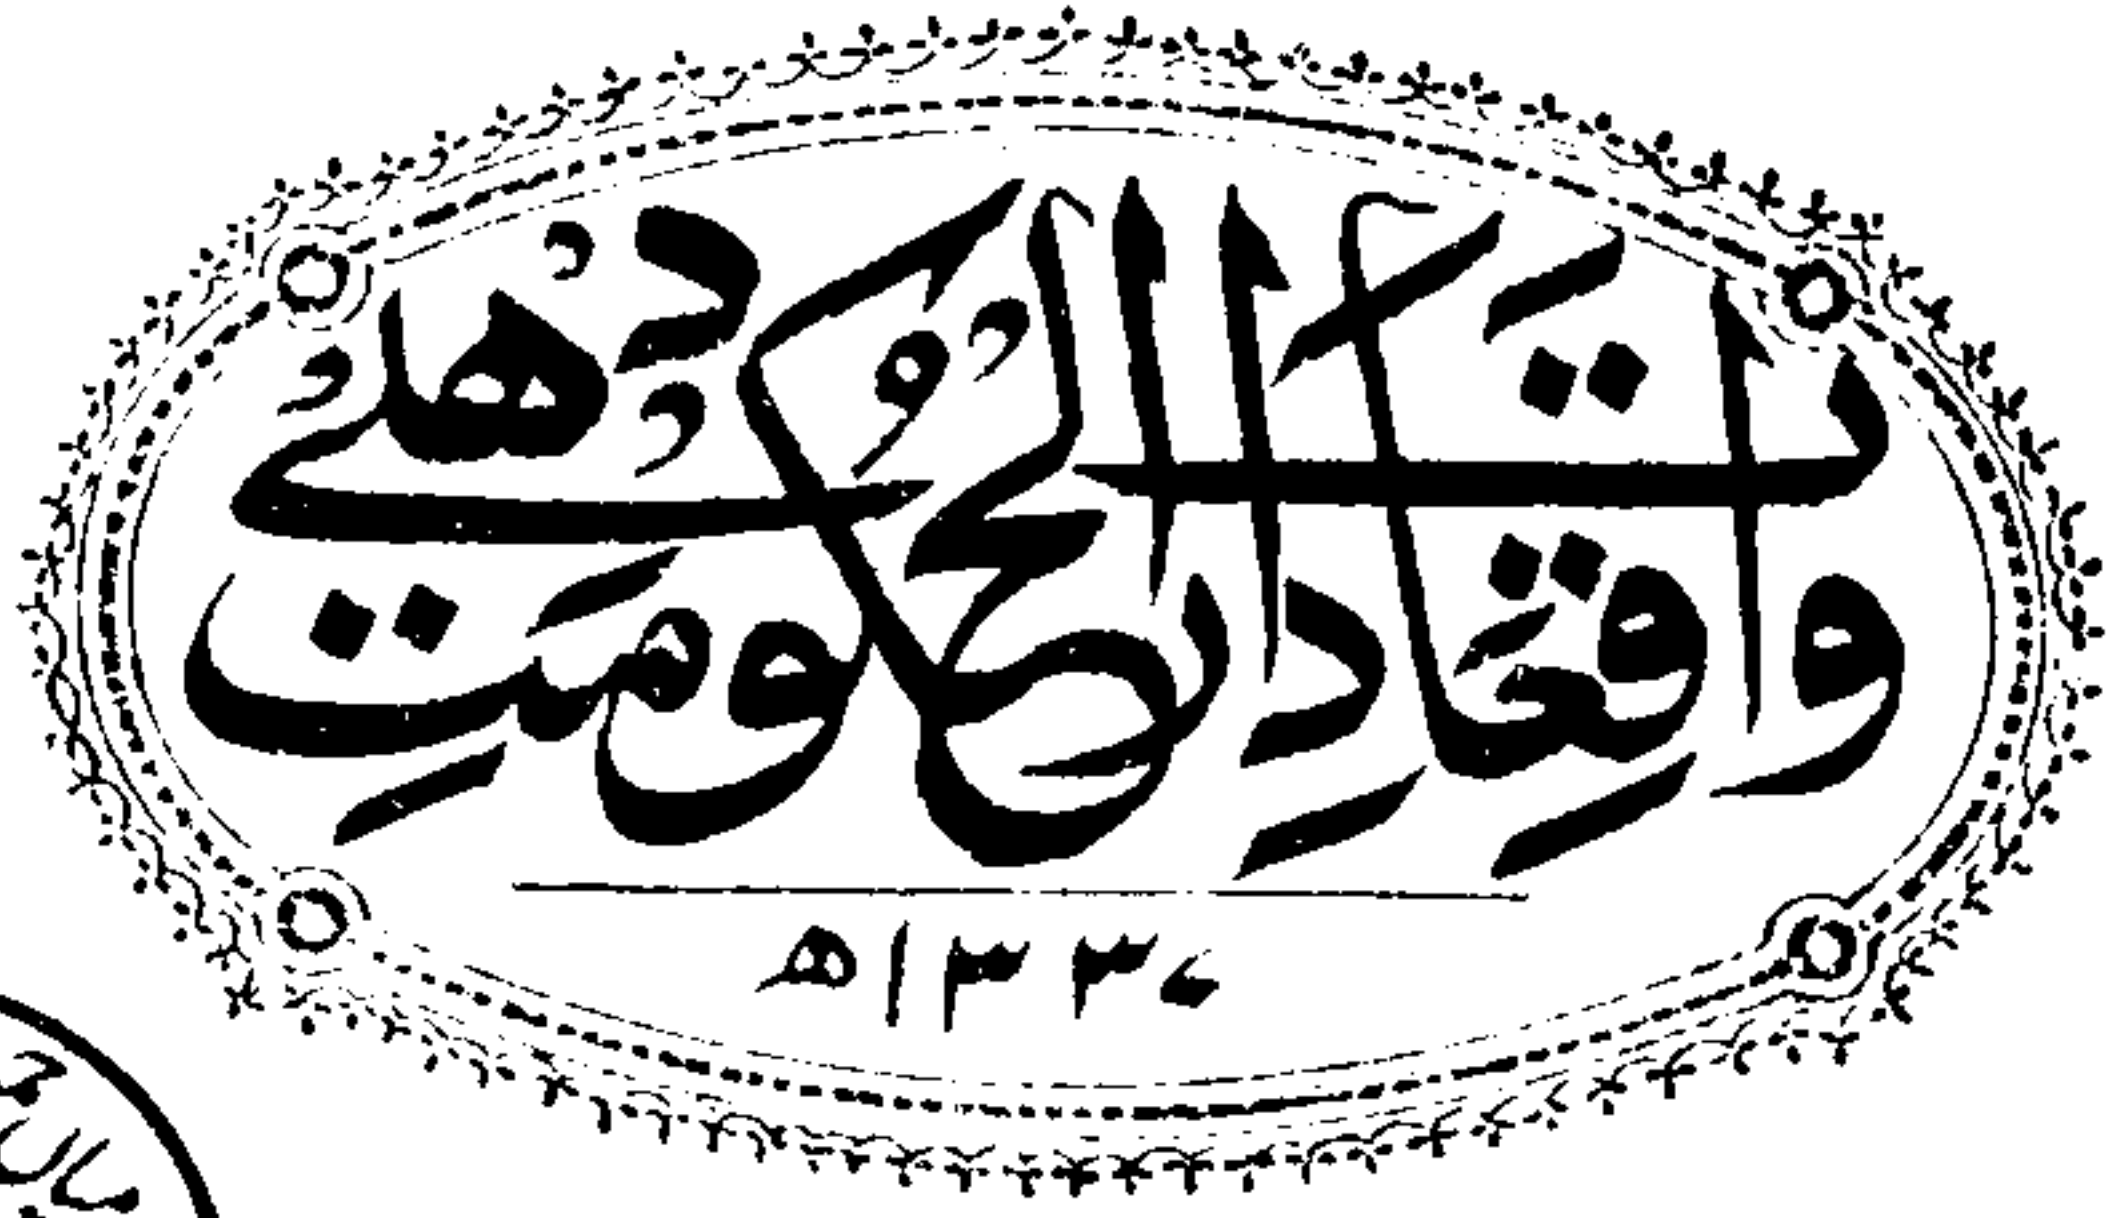 واقعاتِ دارالحکومتِ دہلی
۱۳۳۷ھ